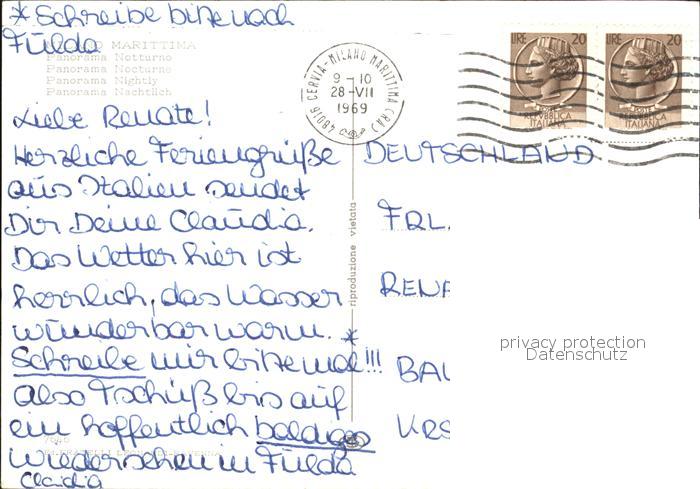 * Schreibe bitte nach
Fulda
MARITTIMA
Panorama Notturno
Panorama Nocturne
Panorama Nightly
Panorama Nachtlich
Liebe Renate!
Herzliche Feriengrüße
aus Italien sendet
Dir Deine Claudia.
Das Wetter hier ist
herrlich, das Wasser
wunderbar warm. *
Schreibe mir bitte mal!!!
Also Tschüß bis auf
ein hoffentlich baldiges
Wiedersehen in Fulda
Claudia
riproduzione vietata
48016 CERVIA-MILANO MARITTIMA (RA)
9-10
28-VII
1969
LIRE 20
POSTE
REPVBBLICA
ITALIANA
LIRE 20
POSTE
REPVBBLICA
ITALIANA
DEUTSCHLAND
FRL.
RENA
BAU
KRS
privacy protection
Datenschutz